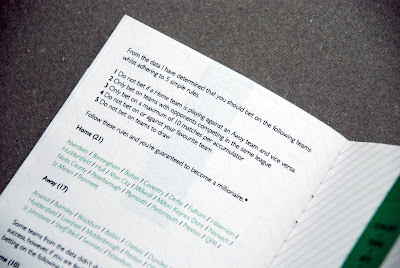 From the data I have determined that you should bet on the following teams
whilst adhering to 5 simple rules.
1 Do not bet if a Home team is playing against an Away team and vice versa
2 Only bet on teams with opponents competing in the same league
3 Only bet on a maximum of 10 matches per accumulator
4 Do not bet on or against your favourite team
5 Do not bet on teams to draw
Follow these rules and you're guaranteed to become a millionaire.*
Home (21)
Aberdeen / Birmingham / Bolton / Coventry / Derby / Fulham / Hibernian /
Huddersfield / Hull / Man City / Millwall / Milton Keynes Dons / Norwich /
Notts County / Peterborough / Plymouth / Portsmouth / Preston / QPR /
St Mirren /
Away (17)
Arsenal / Barnsley / Blackburn / Bolton / Chelsea / Dundee
Huddersfield / Liverpool /
St Johnstone / Sheff Wed / Swindon / Tottenham
Some teams from the data didn't
success, however, if you are
betting on the following
Home (10)